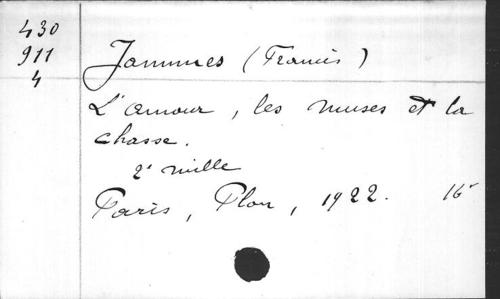 430
911
4
Jammes (Francis)
L'amour, les muses et la
chasse.
2e mille
Paris, Plon, 1922. 16°